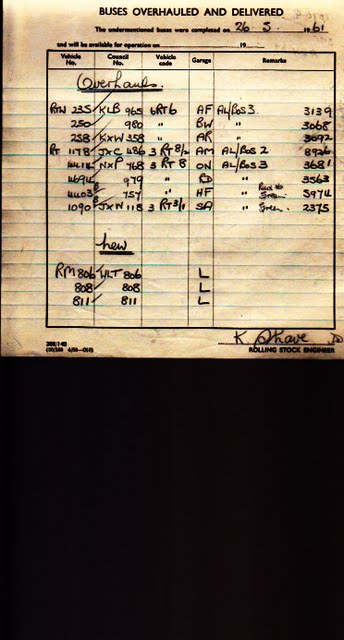 BUSES OVERHAULED AND DELIVERED
The undermentioned buses were completed on 26 5 1961
and will be available for operation on 19
Vehicle No. Council No. Vehicle code Garage Remarks
Overhauls.
RTW 235 KLB 965 6RT6 AF AL/Bos 3. 3139
250 980 " BW " 3068
258 KXW 358 " AR " 3092
RT 1178 JXC 486 3 RT8/2 AM AL/Bos 2 8926
NXP 768 3 RT 8 ON AL/Bos 3 3681
979 " RD " 3563
757 " HF Green.
1090 JXN 118 3 RT3/1 SA Green. 2375
New
RM 806 WLT 806 L
808 808 L
811 811 L
K Shave
ROLLING STOCK ENGINEER